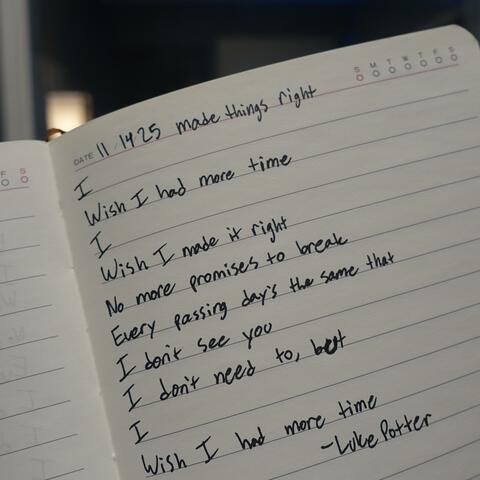 F S
S M T W T F S
DATE 11/14/25 made things right
I
Wish I had more time
I
Wish I made it right
No more promises to break
Every passing day's the same that
I don't see you
I don't need to, but
I
Wish I had more time
-Luke Potter